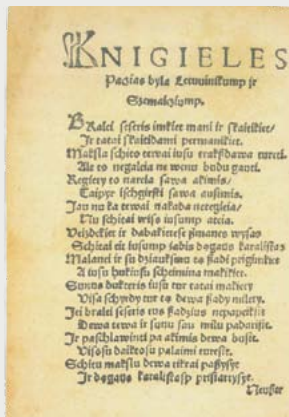 KNIGIELES
Pacias byla Letuvinikump ir
Szemaicziump.
BRalei seseris imkiet mani ir skaitikiet/
Ir tatai skaitidami permanikiet.
Maksla schito tewai iusu trakschdawa tureti
Ale to negaleia ne wenu budu gauti.
Regiety to nareia sawa akimis/
Taipyr ischgirsti sawa ausimis.
Jau nu ka tewai nakada neregieia/
Nu schitai wiso iusump ateia.
Veisdekiet ir dabakietese szmanes wysas
Schitai eit iusump szadis dągaus karalistas
Malanei ir su dziauksmu to szadi
A iusu hukiusu scheimina makikiet.
Sunus dukteris iusu tur tatai makiety
Visa schyrdy tur to dewa szady milety.
Jei bralei seseris tus szadzius nepapeiksit
Dewa tewa ir sunu sau milu padarisit.
Ir paschlawinti pa akimis dewa busit.
Visosu daiktosu palaimi turesit.
Schitu makslu dewa tikrai paszysyt
Ir dągaus karalistasp prisiartysyt.